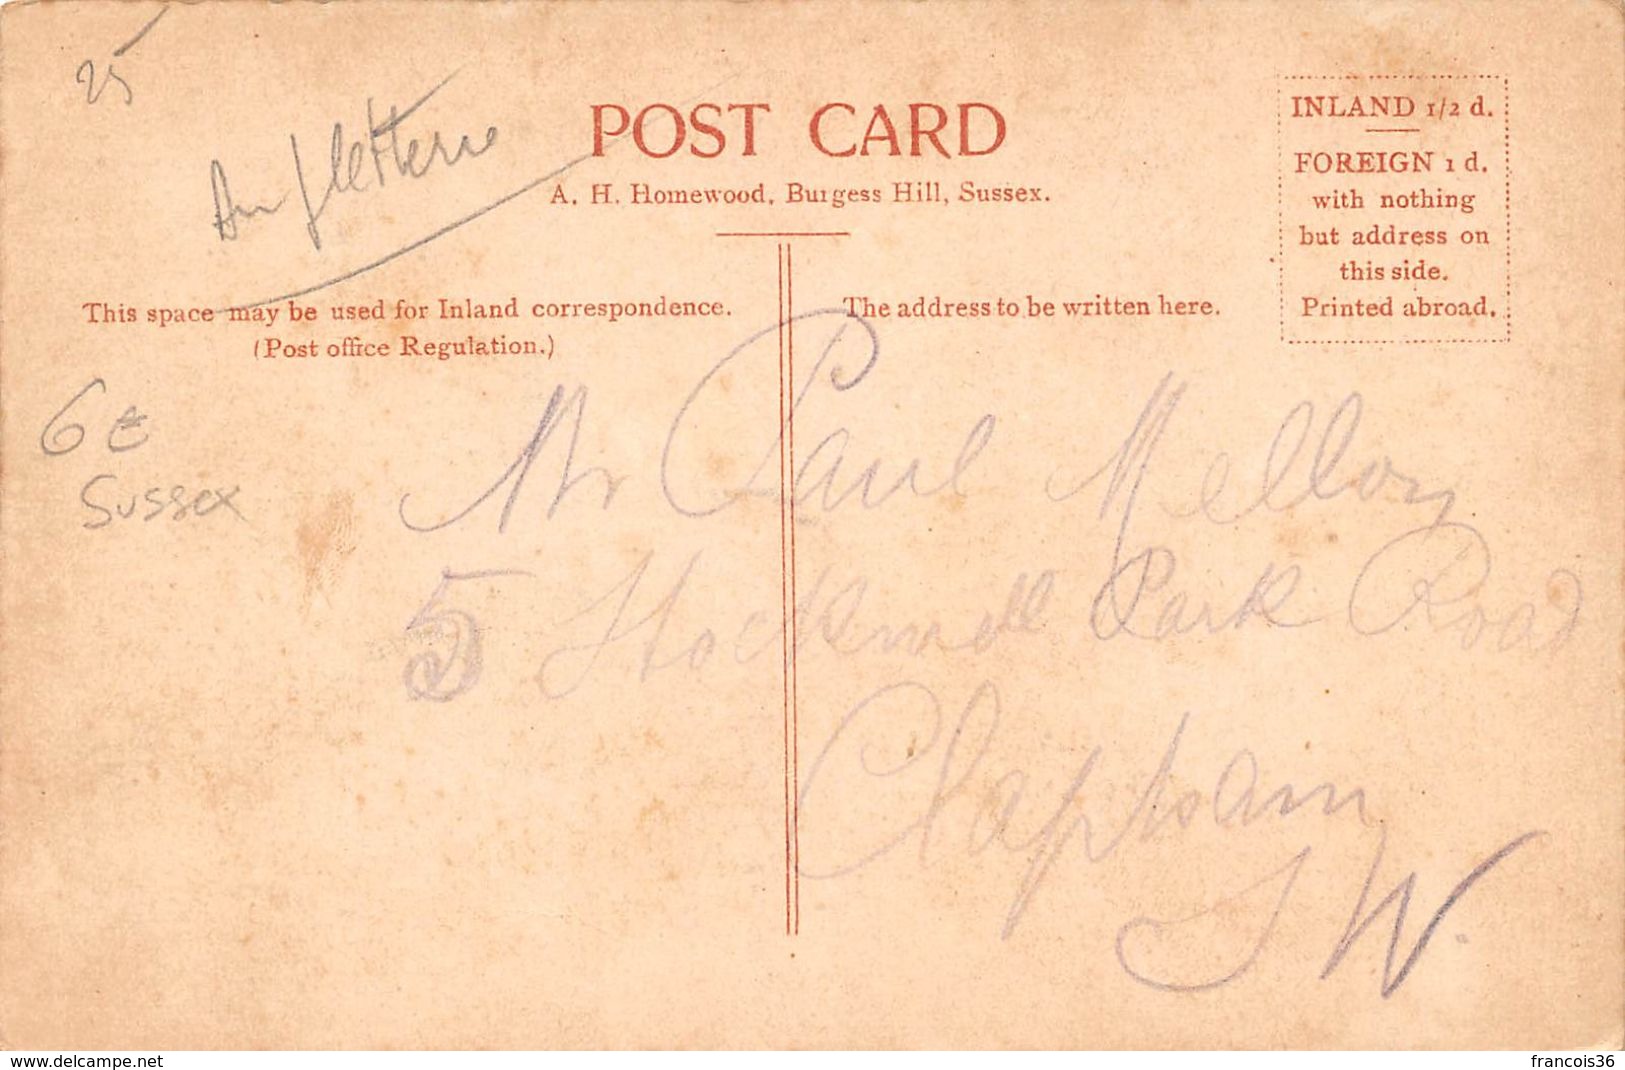 25
Angleterre
POST CARD
A. H. Homewood, Burgess Hill, Sussex.
INLAND 1/2 d.
FOREIGN 1 d.
with nothing
but address on
this side.
Printed abroad.
This space may be used for Inland correspondence.
(Post office Regulation.)
The address to be written here.
6 €
Sussex
Mr Paul Mellon
5 Stockwell Park Road
Clapham
SW.
www.delcampe.net
francois36